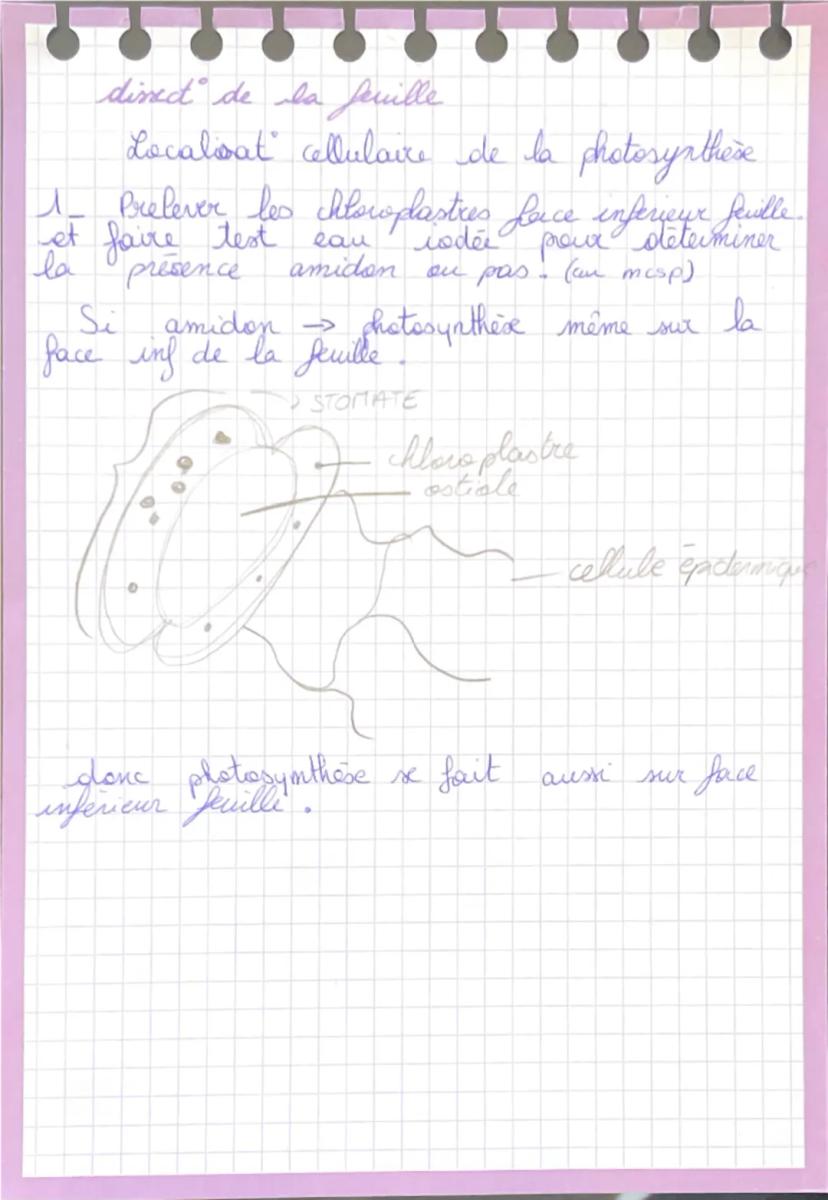 direct° de la feuille
Localisat° cellulaire de la photosynthèse
1_ Prelever les chloroplastres face inférieur feuille.
et faire test eau iodée pour déterminer
la présence amidon ou pas. (au mcsp)
Si amidon → photosynthèse même sur la
face inf de la feuille.
STOMATE
chloroplastre
ostiole
cellule épidermique
donc photosynthèse se fait aussi sur face
inférieur feuille.